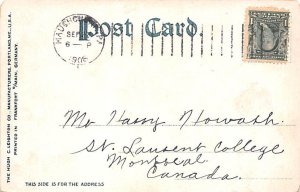 Post Card.
SEP
6 — P
190
THE HUGH C. LEIGHTON CO., MANUFACTURERS, PORTLAND, ME., U.S.A.
PRINTED IN FRANKFORT GERMANY.
Mr Harry
St. Laurent College
Montreal
Canada.
THIS SIDE IS FOR THE ADDRESS